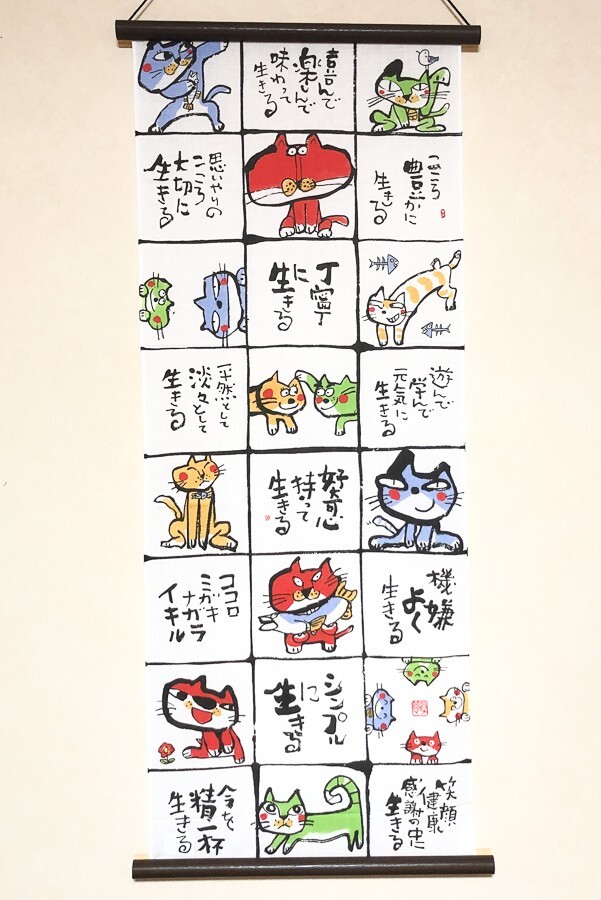 喜んで
楽しんで
味わって
生きる
こころ
豊かに
生きる
思いやりの
こころ
大切に
生きる
丁寧
に
生きる
遊んで
学んで
元気に
生きる
平然として
淡々として
生きる
好奇心
持って
生きる
機嫌
よく
生きる
ココロ
ミガキ
ナガラ
イキル
シンプル
に
生きる
笑顔
健康
感謝の
生きる
今を
精一杯
生きる